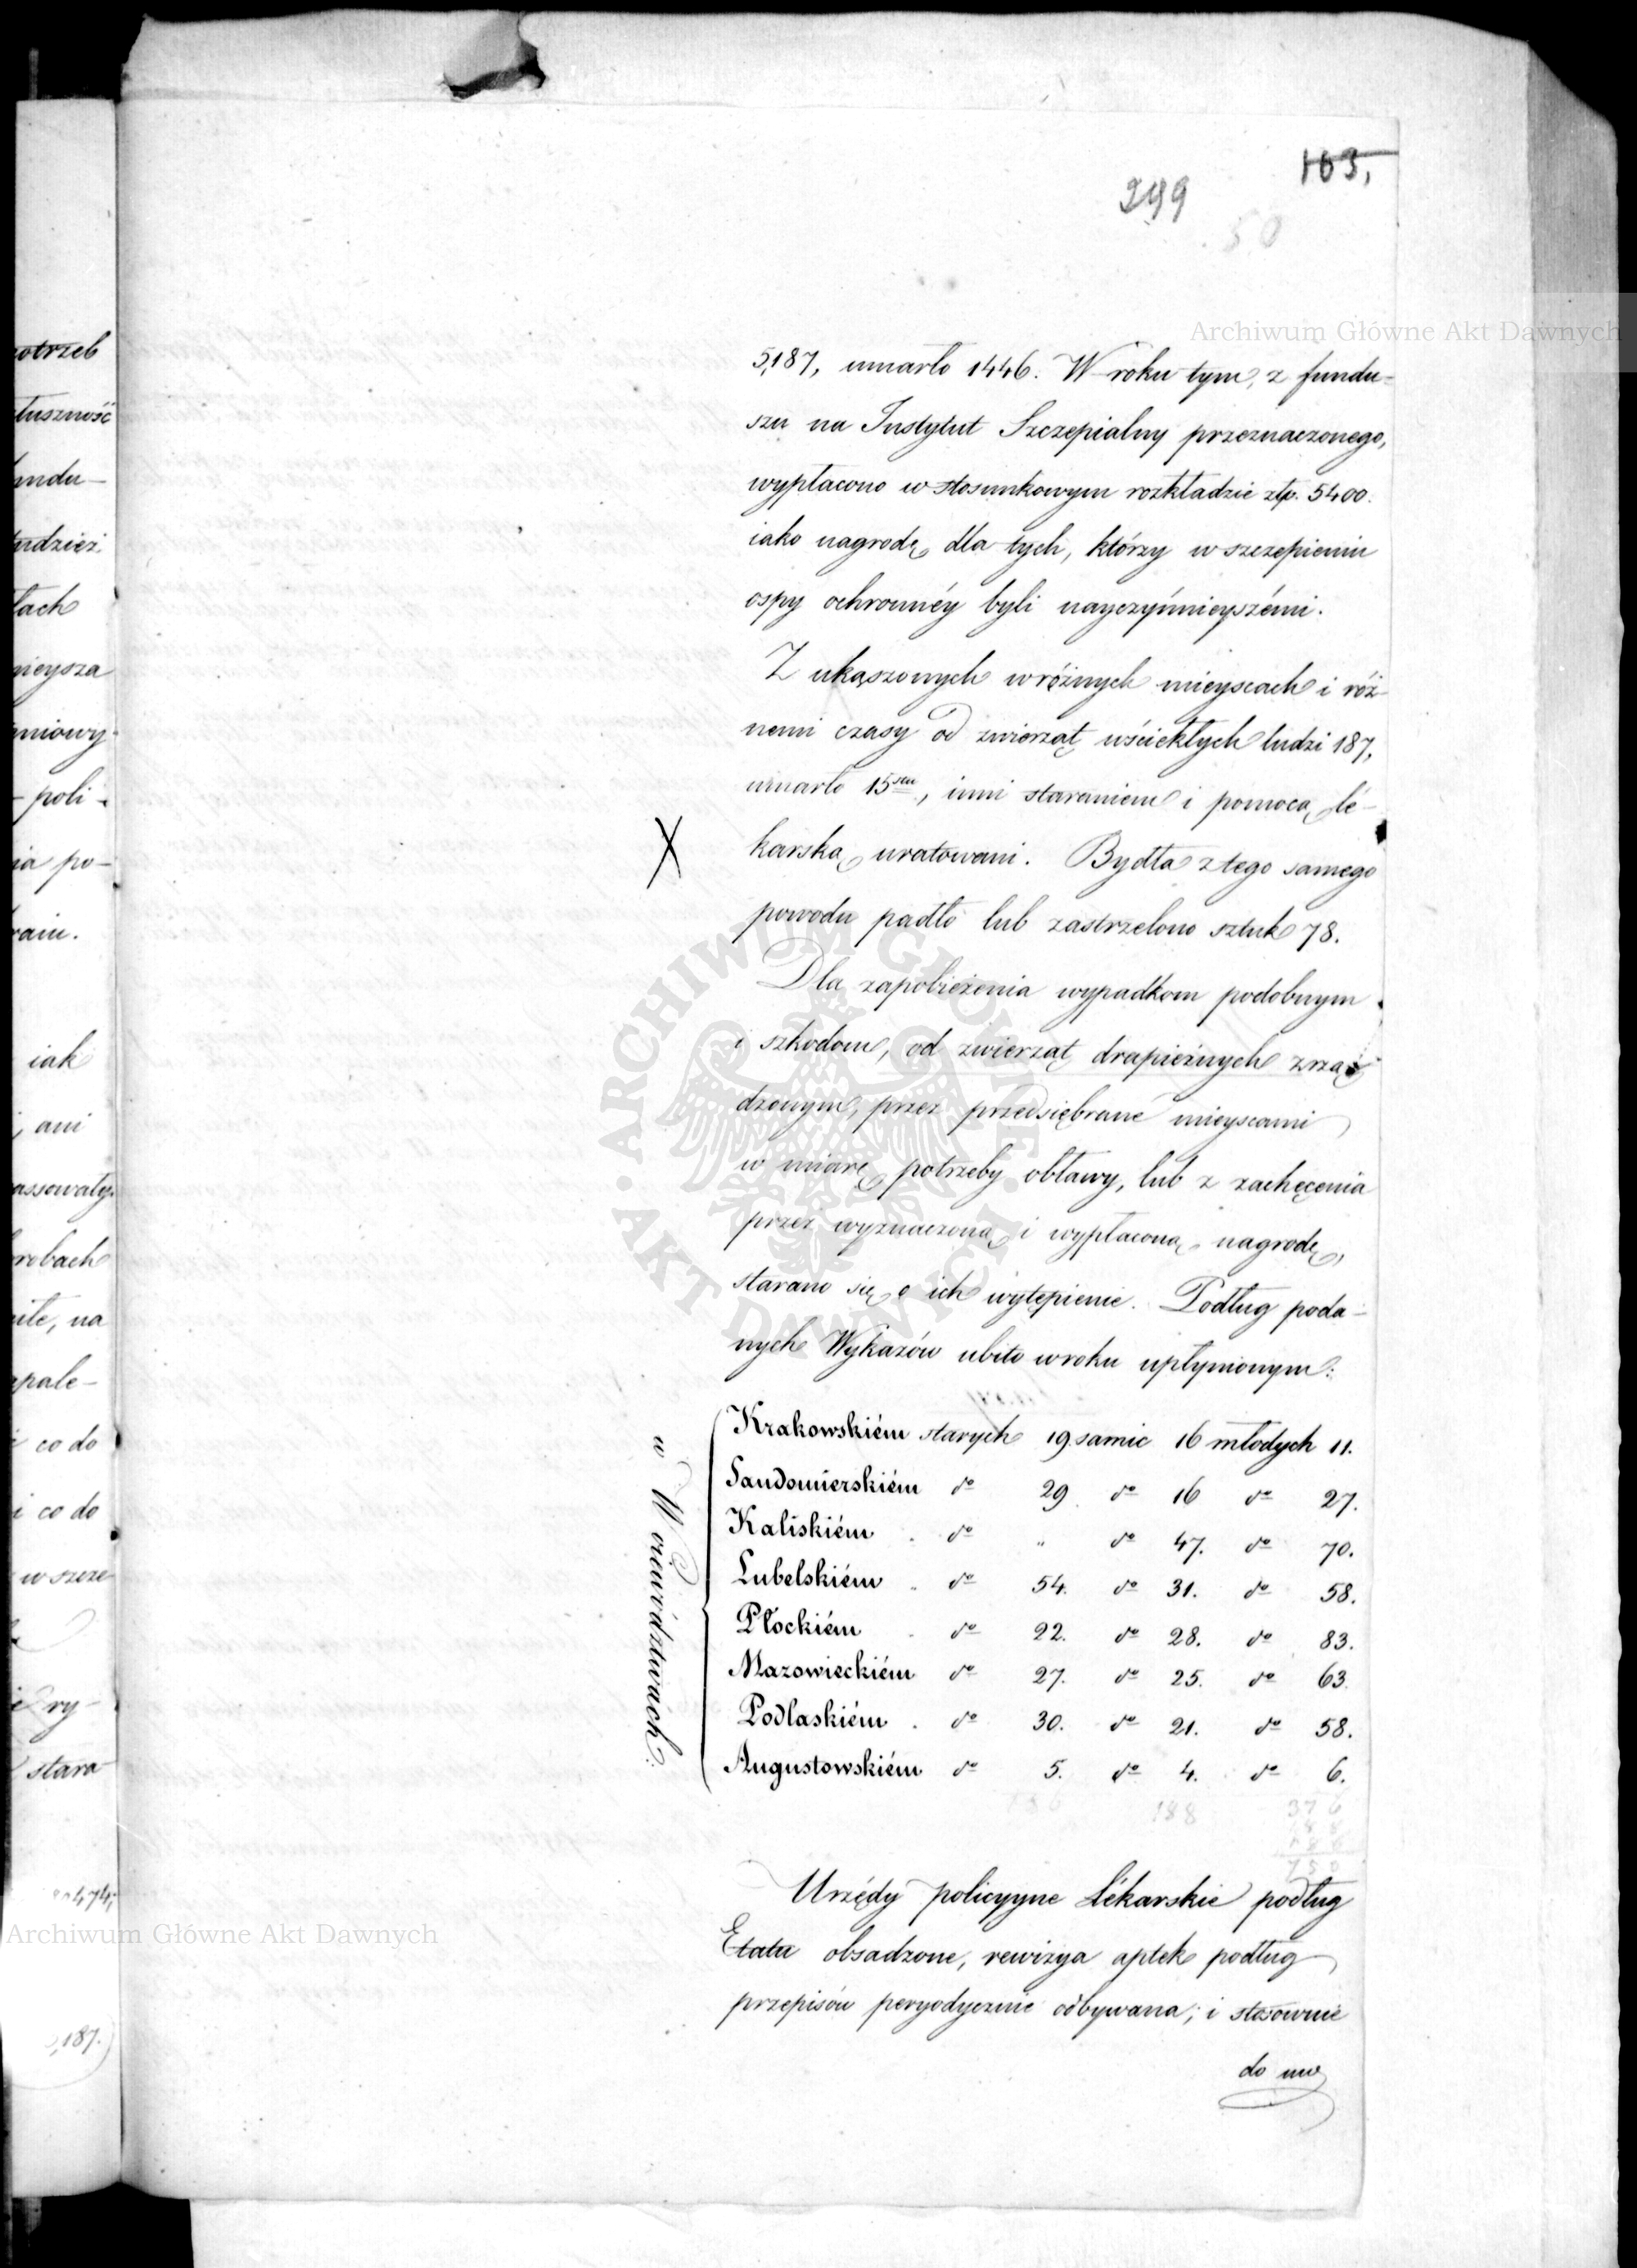 163,
299
50
Archiwum Główne Akt Dawnych
5,187, umarło 1446. W roku tym, z fundu-
szu na Instytut Szczepialny przeznaczonego,
wypłacono w stosunkowym rozkładzie złp. 5400.
iako nagrodę dla tych, którzy w szczepieniu
ospy ochronnéy byli nayczynnieyszémi.
Z ukąszonych w różnych mieyscach i róż-
nemi czasy od zwierząt wściekłych ludzi 187,
umarło 15stu, inni staraniem i pomocą lé-
X
karską uratowani. Bydła z tego samego
powodu padło lub zastrzelono sztuk 78.
Dla zapobieżenia wypadkom podobnym
i szkodom, od zwierząt drapieżnych zrzą-
dzonym, przez przedsiębrane mieyscami
w miarę potrzeby obławy, lub z zachęcenia
przez wyznaczoną i wypłaconą nagrodę,
starano się o ich wytępienie. Podług poda-
nych Wykazów ubito w roku upłynionym:
w Woiewództwach:
Krakowskiém starych 19 samic 16 młodych 11.
Sandomierskiém do 29 do 16 do 27.
Kaliskiém do " do 47. do 70.
Lubelskiém do 54. do 31. do 58.
Płockiém do 22. do 28. do 83.
Mazowieckiém do 27. do 25. do 63.
Podlaskiém do 30. do 21. do 58.
Augustowskiém do 5. do 4. do 6.
186 188 376
188
186
750
Urzędy policyyne Lékarskie podług
Etatu obsadzone, rewizya aptek podług
przepisów peryodycznie odbywana; i stosownie
do uw
ARCHIWUM GŁÓWNE AKT DAWNYCH
potrzeb
tuszność
undu-
udzież
łach
nieysza
niowy
- poli-
ia po-
raiu.
iak
, ani
assowały
robach
ite, na
pale-
co do
i co do
w szcze
ry-
stara
474;
Archiwum Główne Akt Dawnych
,187.